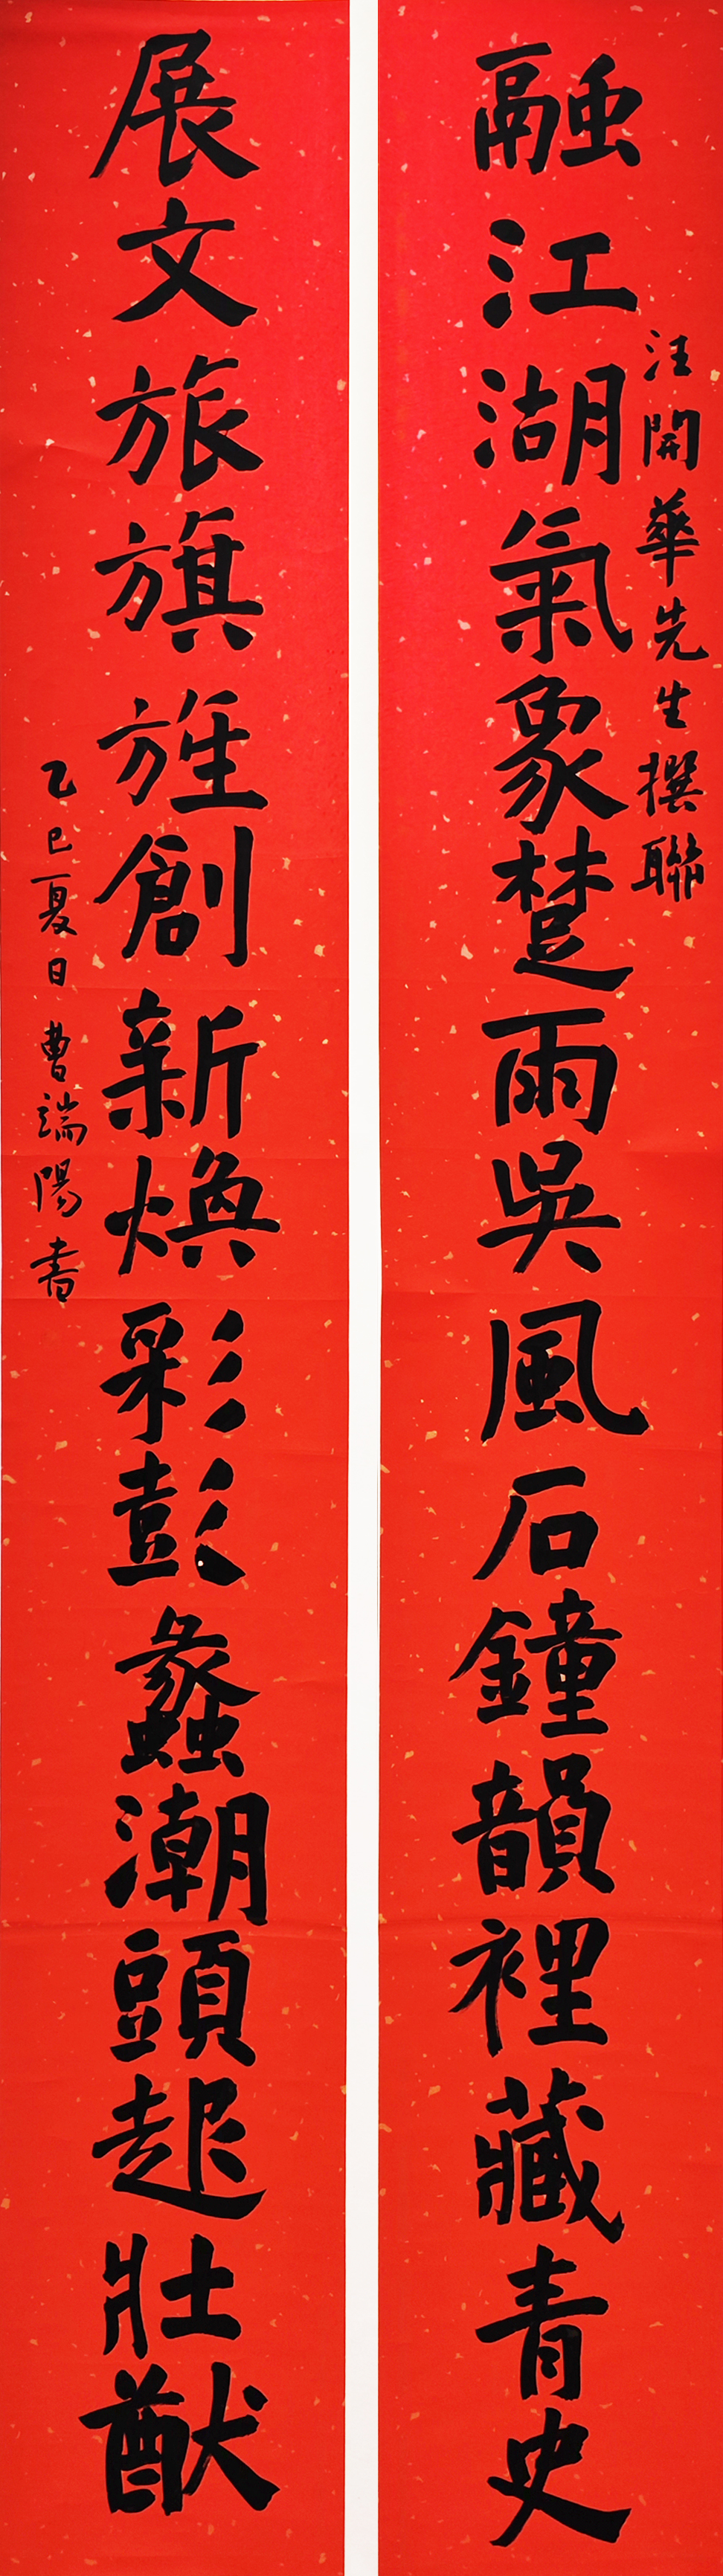 汪開華先生撰聯
融江湖氣象楚雨吳風石鐘韻裡藏青史
展文旅旗旌創新煥彩彭蠡潮頭起壯猷
乙巳夏日曹端陽書